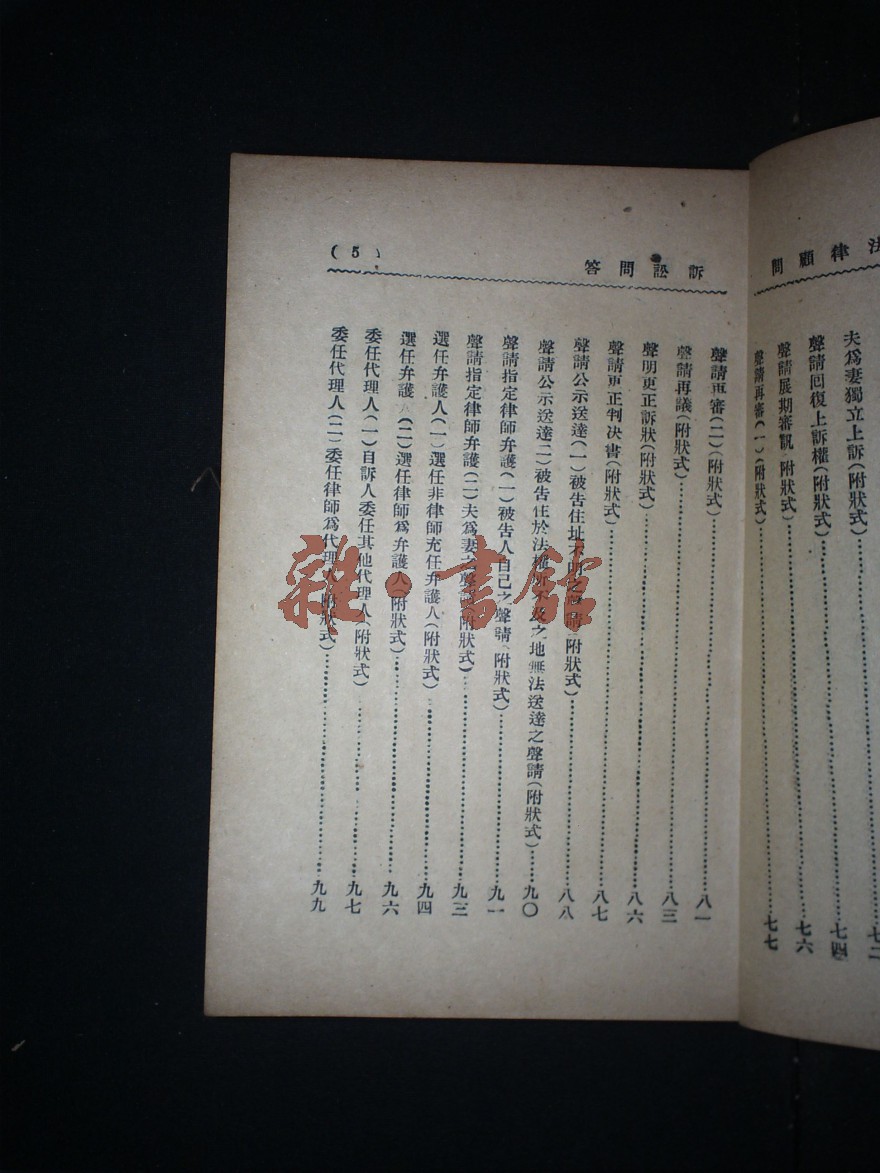 法律顧問
夫爲妻獨立上訴(附狀式)……七二
聲請回復上訴權(附狀式)……七四
聲請展期審訊(附狀式)……七六
聲請再審(一)(附狀式)……七七
訴訟問答
(5)
聲請再審(二)(附狀式)……八一
聲請再議(附狀式)……八三
聲明更正訴狀(附狀式)……八六
聲請更正判決書(附狀式)……八七
聲請公示送達(一)被告住址不明之聲請(附狀式)……八八
聲請公示送達(二)被告住於法權所不及之地無法送達之聲請(附狀式)……九〇
聲請指定律師弁護(一)被告人自己之聲請(附狀式)……九一
聲請指定律師弁護(二)夫爲妻之聲請(附狀式)……九三
選任弁護人(一)選任非律師充任弁護人(附狀式)……九四
選任弁護人(二)選任律師爲弁護人(附狀式)……九六
委任代理人(一)自訴人委任其他代理人(附狀式)……九七
委任代理人(二)委任律師爲代理人(附狀式)……九九
雜·書館